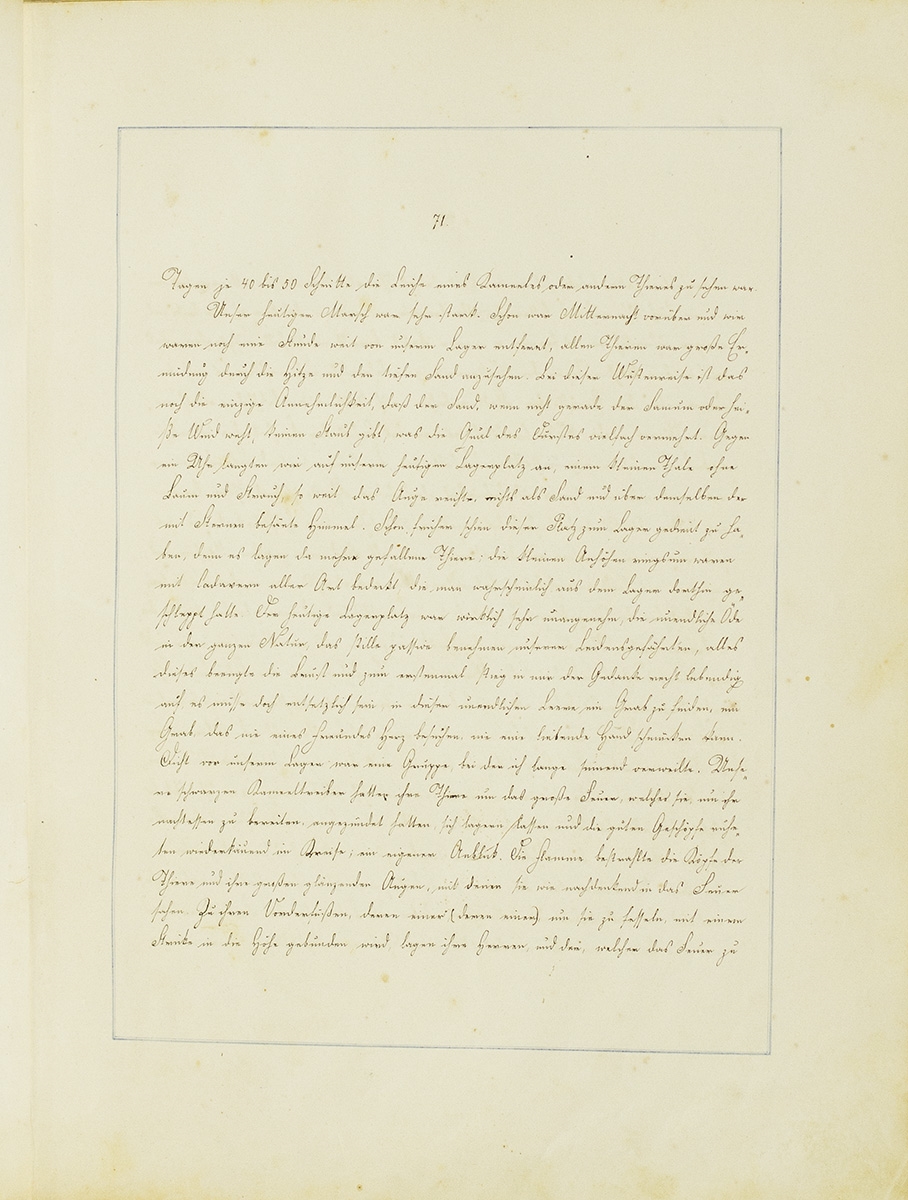 71.
Tagen je 40 bis 50 Schritte die Leiche eines Kameeles oder andern Thieres zu sehen war.
Unser heutiger Marsch war sehr stark. Schon war Mitternacht vorüber und wir
waren noch eine Stunde weit von unserm Lager entfernt, allen Thieren war große Er-
müdung durch die Hitze und den tiefen Sand anzusehen. Bei dieser Wüstenreise ist das
noch die einzige Annehmlichkeit, daß der Sand, wenn nicht gerade der Samum oder hei-
ße Wind weht, keinen Staub gibt, was die Qual des Durstes vielfach vermehrt. Gegen
ein Uhr langten wir auf unserm heutigen Lagerplatz an, einem kleinen Thale ohne
Baum und Strauch, so weit das Auge reichte, nichts als Sand und über demselben der
mit Sternen besäete Himmel. Schon früher schien dieser Platz zum Lager gedient zu ha-
ben, denn es lagen da mehre gefallene Thiere; die kleinen Anhöhen ringsum waren
mit Cadavern aller Art bedeckt, die man wahrscheinlich aus dem Lager dorthin ge-
schleppt hatte. Der heutige Lagerplatz war wirklich sehr unangenehm, die unendliche Öde
in der ganzen Natur, das stille passive benehmen unserer Leidensgefährten, alles
dieses beengte die Brust und zum erstenmal stieg in mir der Gedanke recht lebendig
auf, es müsse doch entsetzlich sein, in dieser unendlichen Leere ein Grab zu finden, ein
Grab, das nie eines Freundes Herz besuchen, nie eine liebende Hand schmücken kann.
Dicht vor unserm Lager war eine Gruppe, bei der ich lange sinnend verweilte. Unse-
re schwarzen Kameeltreiber hatten ihre Thiere um das große Feuer, welches sie, um ihr
nachtessen zu bereiten, angezündet hatten, sich lagern lassen und die guten Geschöpfe ruhe-
ten wiederkäuend im Kreise; ein eigener Anblick. Die Flamme bestrahlte die Köpfe der
Thiere und ihre großen glänzenden Augen, mit denen sie wie nachdenkend in das Feuer
sahen. Zu ihren Vorderfüßen, deren einer (deren einer) um sie zu fesseln, mit einem
Stricke in die Höhe gebunden wird lagen ihre Herren, und der, welcher das Feuer zu